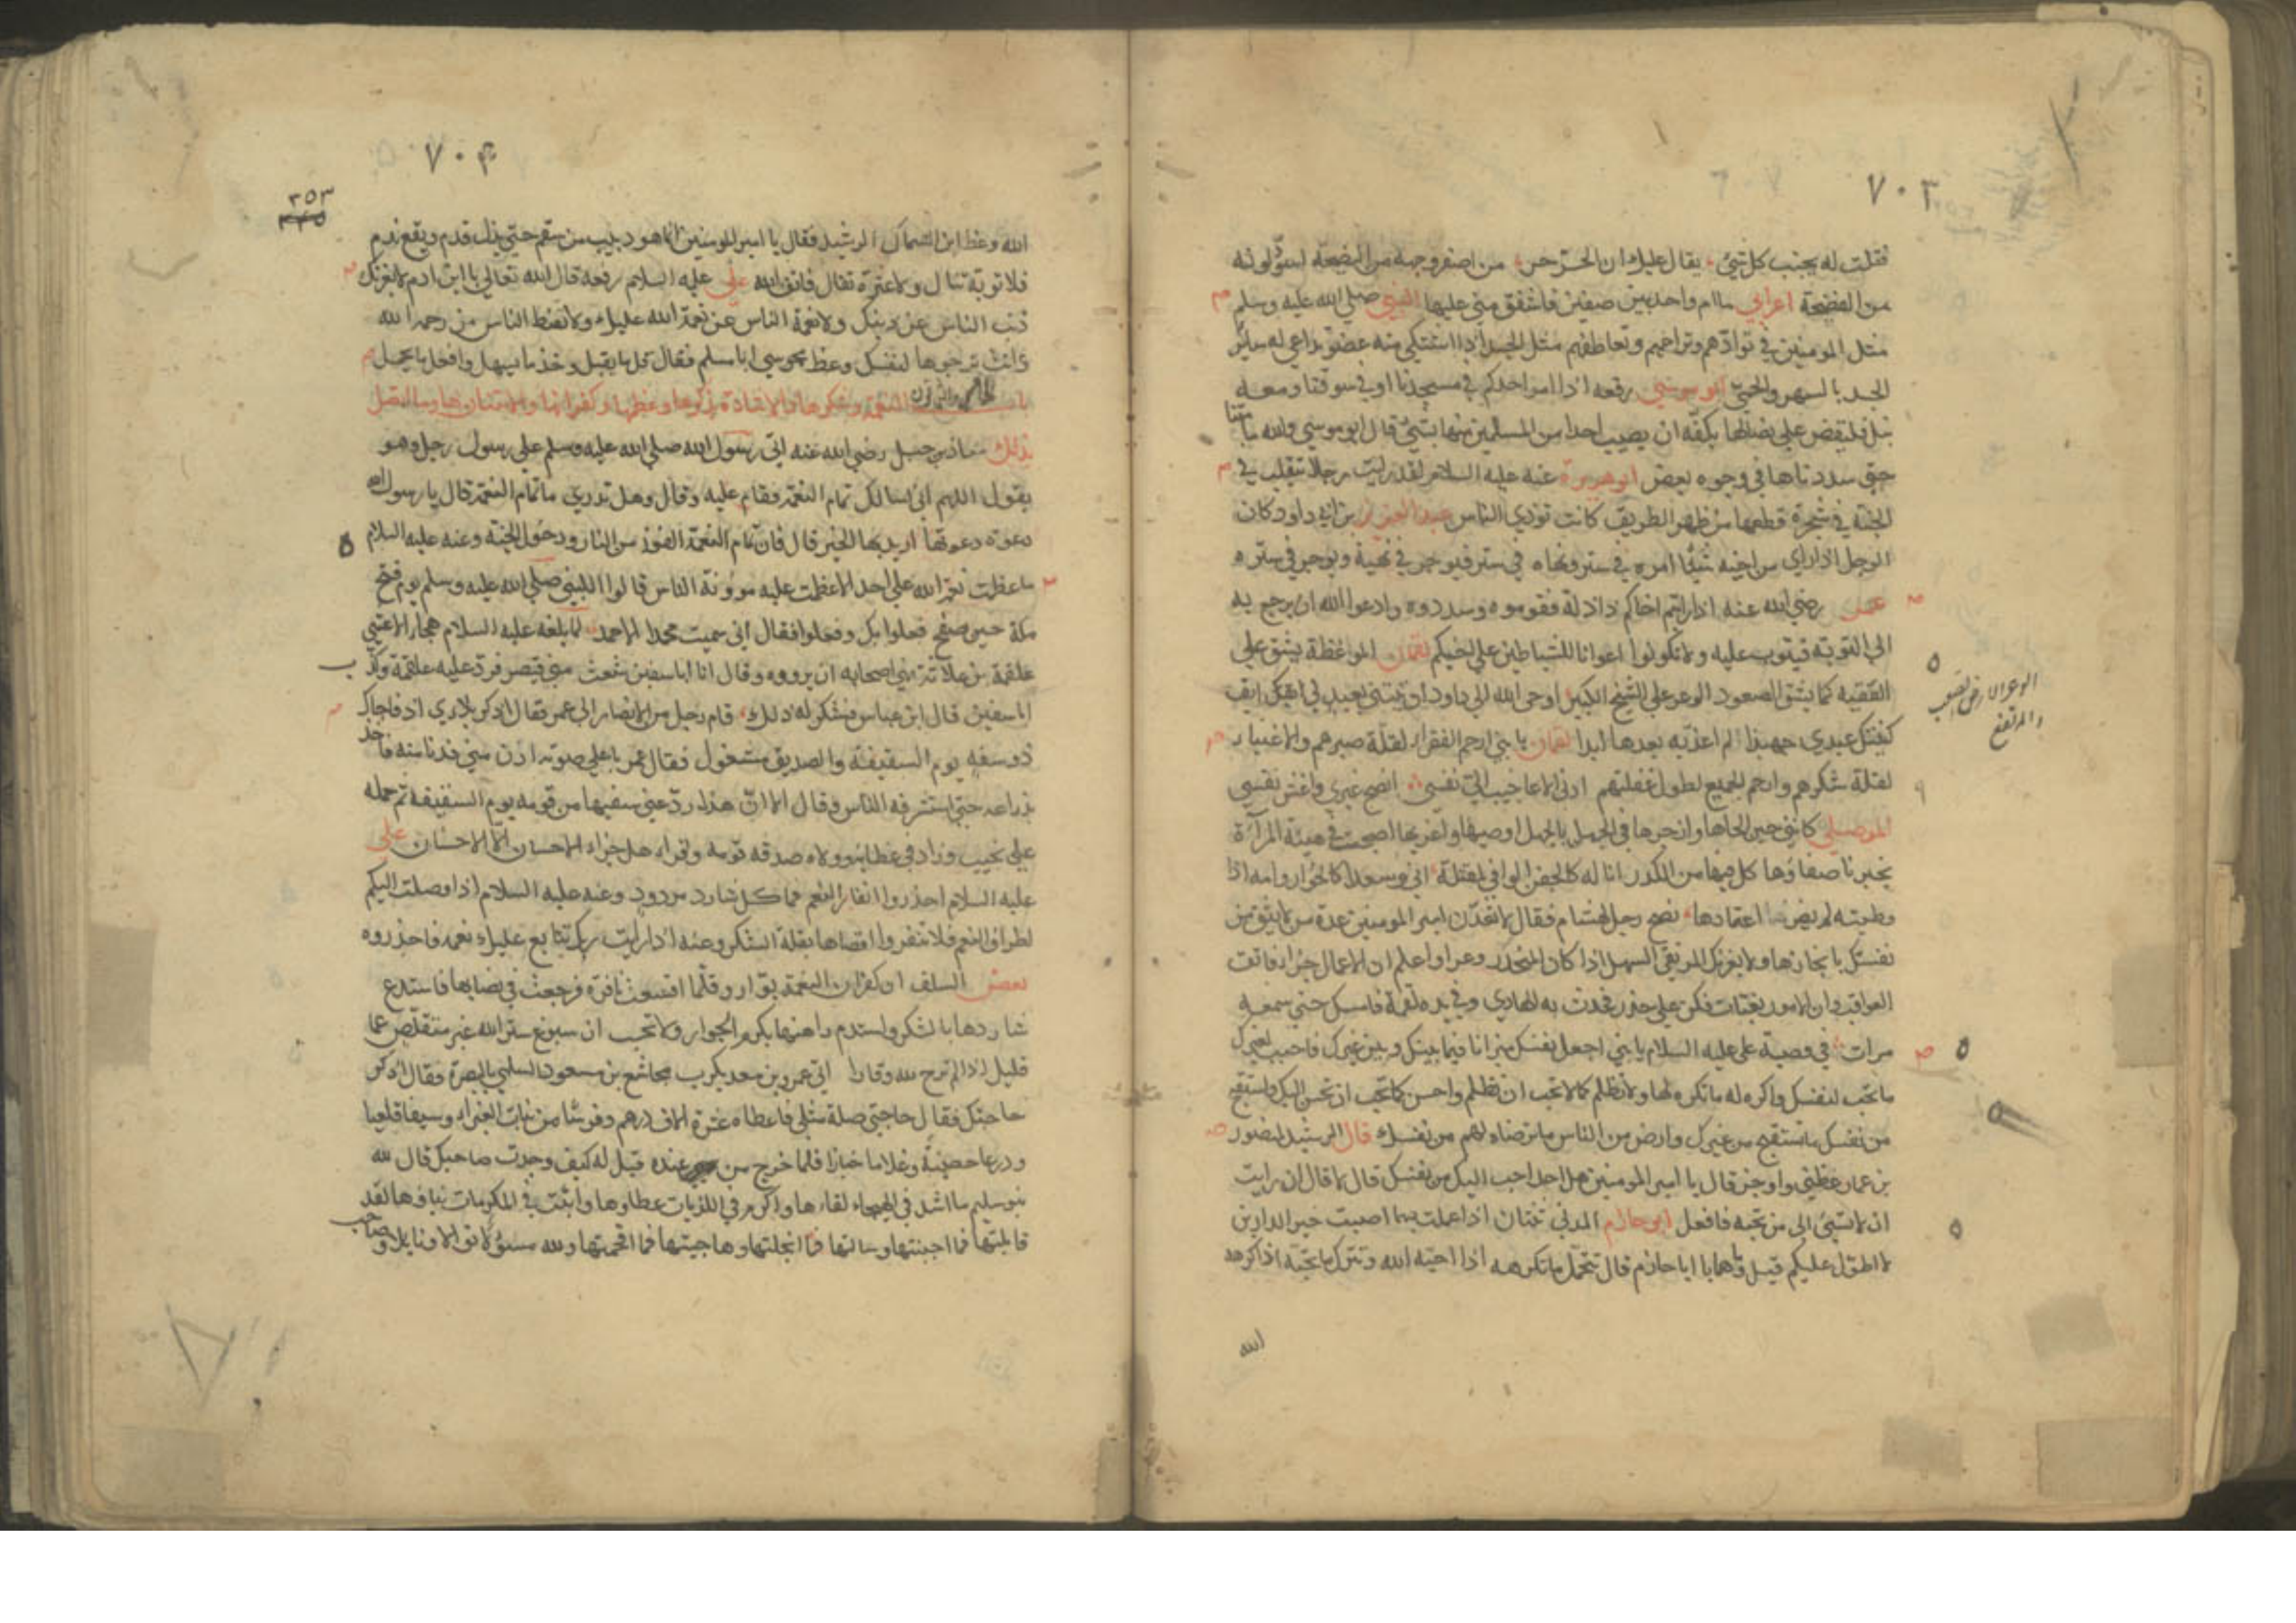 ٧٠٣
فقلت له يجنب كل شيء يقال عليك ان الحر حر من اصفر وجهه من النصيحة اسود لونه
من الفضيحة اعرابي ما ام واحد بين صفين فاشفق مني عليها النبي صلى الله عليه وسلم
مثل المومنين في توادهم وتراحمهم وتعاطفهم مثل الجسد اذا اشتكي منه عضو تداعي له سائر
الجسد بالسهر والحمي ابو موسي رفعه اذا مر احدكم في مسجدنا او في سوقنا ومعه
نبل فليقبض علي نصالها بكفه ان يصيب احدا من المسلمين منها بشيء قال ابو موسي والله ما متنا
حتي سددناها في وجوه بعض ابو هريرة عنه عليه السلام لقد رايت رجلا يتقلب في
الجنة في شجرة قطعها من ظهر الطريق كانت توذي الناس عبد العزيز بن ابي داود كان
الرجل اذا راي من اخيه شيئا امره في ستر ونهاه في ستر فيوجر في نهيه ويوجر في ستره
عمر رضي الله عنه اذا رايتم اخاكم ذا زلة فقوموه وسددوه وادعوا الله ان يرجع به
الي التوبة فيتوب عليه ولا تكونوا اعوانا للشياطين علي اخيكم لقمان الموعظة يشق علي
السفيه كما يشق الصعود الوعر علي الشيخ الكبير اوحي الله الي داود اذ يتني بعبد لي ابق
كتبتك عبدي جهبذا لم اعذبه بعدها ابدا لقمان يا بني ارحم الفقراء لقلة صبرهم والاغنياء
لقلة شكرهم وارحم الجميع لطول غفلتهم ادني الاعاجيب الي نفسي انصح غيري واغش نفسي
الموصلي كاني حين الحاها وازجرها في الجهل بالجهل اوصيها واغريها اصبحت في هيئة المرآة
يخبرنا صفاؤها كل فيها من الكدر
اعتمادها نصح رجل لهشام فقال لا تعدن امير المومنين عدة من لا يثق من
نفسك بانجازها ولا يغرنك المرتقي السهل اذا كان المنحدر وعرا واعلم ان للاعمال جزاء فاتق
العواقب وان للامور بغتات فكن علي حذر فحدث به المهدي وفي يده لقمة فامسك حتي سمعه
مرات في وصية علي عليه السلام يا بني اجعل نفسك ميزانا فيما بينك وبين غيرك فاحبب لغيرك
ما تحب لنفسك واكره له ما تكره لها ولا تظلم كما لا تحب ان تظلم واحسن كما تحب ان يحسن اليك واستقبح
من نفسك ما تستقبح من غيرك وارض من الناس ما ترضاه لهم من نفسك قال الرشيد لمنصور
بن عمار عظني واوجز قال يا امير المومنين هل احد احب اليك من نفسك قال لا قال ان رايت
ان لا تسئ الي من تحبه فافعل ابو حازم المدني ثنتان اذا عملت بهما اصبت خير الدارين
لا اطول عليكم قيل وما هما يا ابا حازم قال تتحمل ما تكرهه اذا احبه الله وتترك ما تحبه اذا كرهه
الله
الوعر الارض الصعب
والمرتفع
٧٠٤
٣٥٣
الله وعظ ابن السماك الرشيد فقال يا امير المومنين انما هو دبيب من سقم حتي تزل قدم ويقع ندم
فلا توبة تنال ولا عثرة تقال فاتق الله علي عليه السلام رفعه قال الله تعالي يا ابن ادم لا يغرنك
ذنب الناس عن ذنبك ولا نعمة الناس عن نعمة الله عليك ولا تقنط الناس من رحمة الله
وانت ترجوها لنفسك وعظ مجوسي ابا مسلم فقال قل ما يقبل وخذ ما يسهل وافعل ما يجمل
باب النعمة وشكرها والاشادة بذكرها وغمطها وكفرانها والامتنان بها وما اتصل
بذلك معاذ بن جبل رضي الله عنه اتي رسول الله صلي الله عليه وسلم علي رجل وهو
يقول اللهم اني اسالك تمام النعمة فقام عليه وقال وهل تدري ما تمام النعمة قال يا رسول الله
دعوة دعوتها اريد بها الخير قال فان تمام النعمة الفوز من النار ودخول الجنة وعنه عليه السلام
ما عظمت نعمة الله علي احد الا عظمت عليه موونة الناس قالوا للنبي صلي الله عليه وسلم يوم فتح
مكة حين صفح فعلوا بك وفعلوا فقال اني سميت محمدا لاحمد لما بلغه عليه السلام هجاء الاعشي
علقمة بن علاثة نهي اصحابه ان يرووه وقال ان ابا سفين شعث مني عند قيصر فرد عليه علقمة وكذب
ابا سفين قال ابن عباس فشكر له ذلك قام رجل من الانصار الي عمر فقال اذكر بلاءي اذ فاجاك
ذو سفه يوم السقيفة والصديق مشغول فقال عمر باعلي صوته ادن مني فدنا منه فاخذ
بذراعه حتي استشرفه الناس وقال الا ان هذا رد عني سفيها من قومه يوم السقيفة ثم حمله
علي نجيب وزاد في عطائه وولاه صدقة قومه وقرا هل جزاء الاحسان الا الاحسان علي
عليه السلام احذروا نفار النعم فما كل شارد مردود وعنه عليه السلام اذا وصلت اليكم
اطراف النعم فلا تنفروا اقصاها بقلة الشكر وعنه اذا رايت ربك يتابع عليك نعمه فاحذروه
بعض السلف ان كفران النعمة بوار وقلما اقشعت نافرة فرجعت في نصابها فاستدع
شاردها بالشكر واستدم راهنها بكرم الجوار ولا تحسب ان سبوغ ستر الله غير متقلص عما
قليل اذا لم ترج لله وقارا اتي عمرو بن معديكرب مجاشع بن مسعود السلمي بالبصرة فقال اذكر
حاجتك فقال حاجتي صلة مثلي فاعطاه عشرة الاف درهم وفرسا من بنات الغبراء وسيفا قلعيا
ودرعا حصينة وغلاما خبازا فلما خرج من عنده قيل له كيف وجدت صاحبك قال لله
بنو سليم ما اشد في الهيجاء لقاءها واكرم في اللزبات عطاءها واثبت في المكرمات بناءها لقد
قاتلتها فما اجبنتها وسالتها فما ابخلتها وهاجيتها فما افحمتها ولله مسؤلا نوالا ونايلا وصاحب